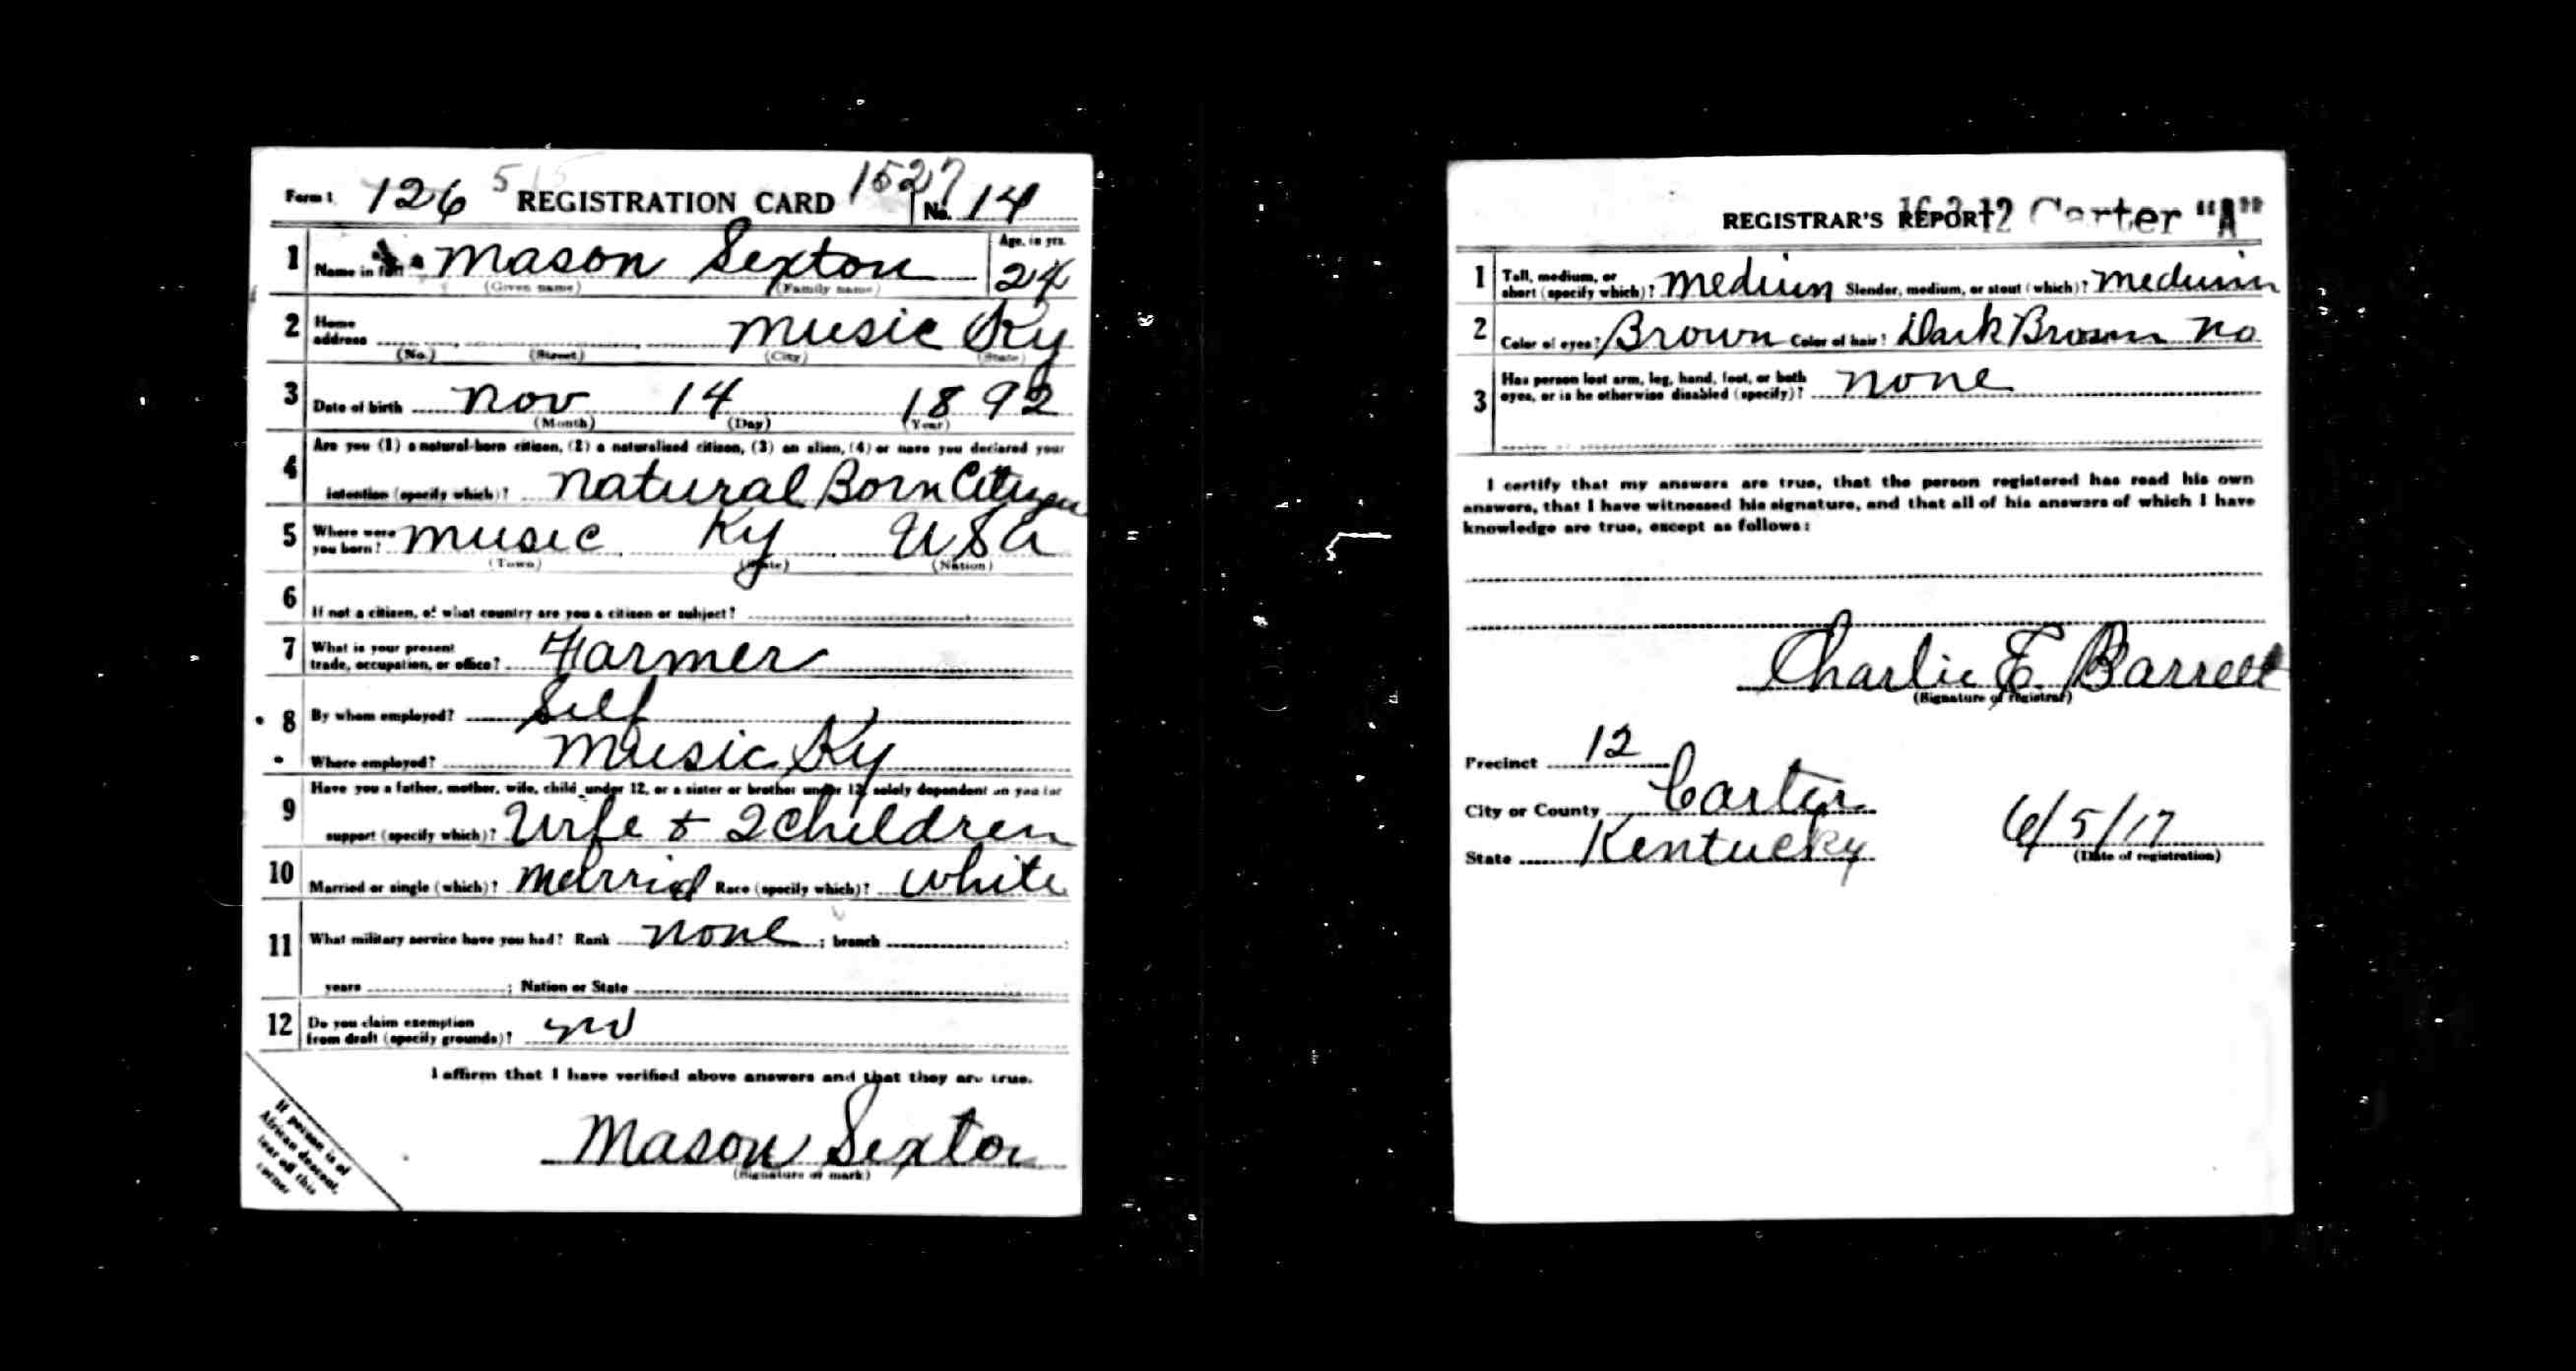 Form 1 126 REGISTRATION CARD 1527 No. 14
1 Name in full Mason Sexton Age, in yrs. 24
(Given name) (Family name)
2 Home address Music Ky
(No.) (Street) (City) (State)
3 Date of birth Nov 14 1892
(Month) (Day) (Year)
Are you (1) a natural-born citizen, (2) a naturalized citizen, (3) an alien, (4) or have you declared your
4 intention (specify which)? Natural Born Citizen
5 Where were you born? Music Ky USA
(Town) (State) (Nation)
6 If not a citizen, of what country are you a citizen or subject?
7 What is your present trade, occupation, or office? Farmer
8 By whom employed? Self
Where employed? Music Ky
Have you a father, mother, wife, child under 12, or a sister or brother under 12, solely dependent on you for
9 support (specify which)? Wife & 2 children
10 Married or single (which)? Married Race (specify which)? White
11 What military service have you had? Rank none ; branch
years ; Nation or State
12 Do you claim exemption
from draft (specify grounds)?
I affirm that I have verified above answers and that they are true.
Mason Sexton
(Signature or mark)
If person is of
African descent,
tear off this
corner
REGISTRAR'S REPORT 16-3-12 Carter "A"
1 Tall, medium, or short (specify which)? Medium Slender, medium, or stout (which)? Medium
2 Color of eyes? Brown Color of hair? Dark Brown No
3 Has person lost arm, leg, hand, foot, or both
eyes, or is he otherwise disabled (specify)? None
I certify that my answers are true, that the person registered has read his own
answers, that I have witnessed his signature, and that all of his answers of which I have
knowledge are true, except as follows:
Charlie E. Barrett
(Signature of registrar)
Precinct 12
City or County Carter
State Kentucky 6/5/17
(Date of registration)